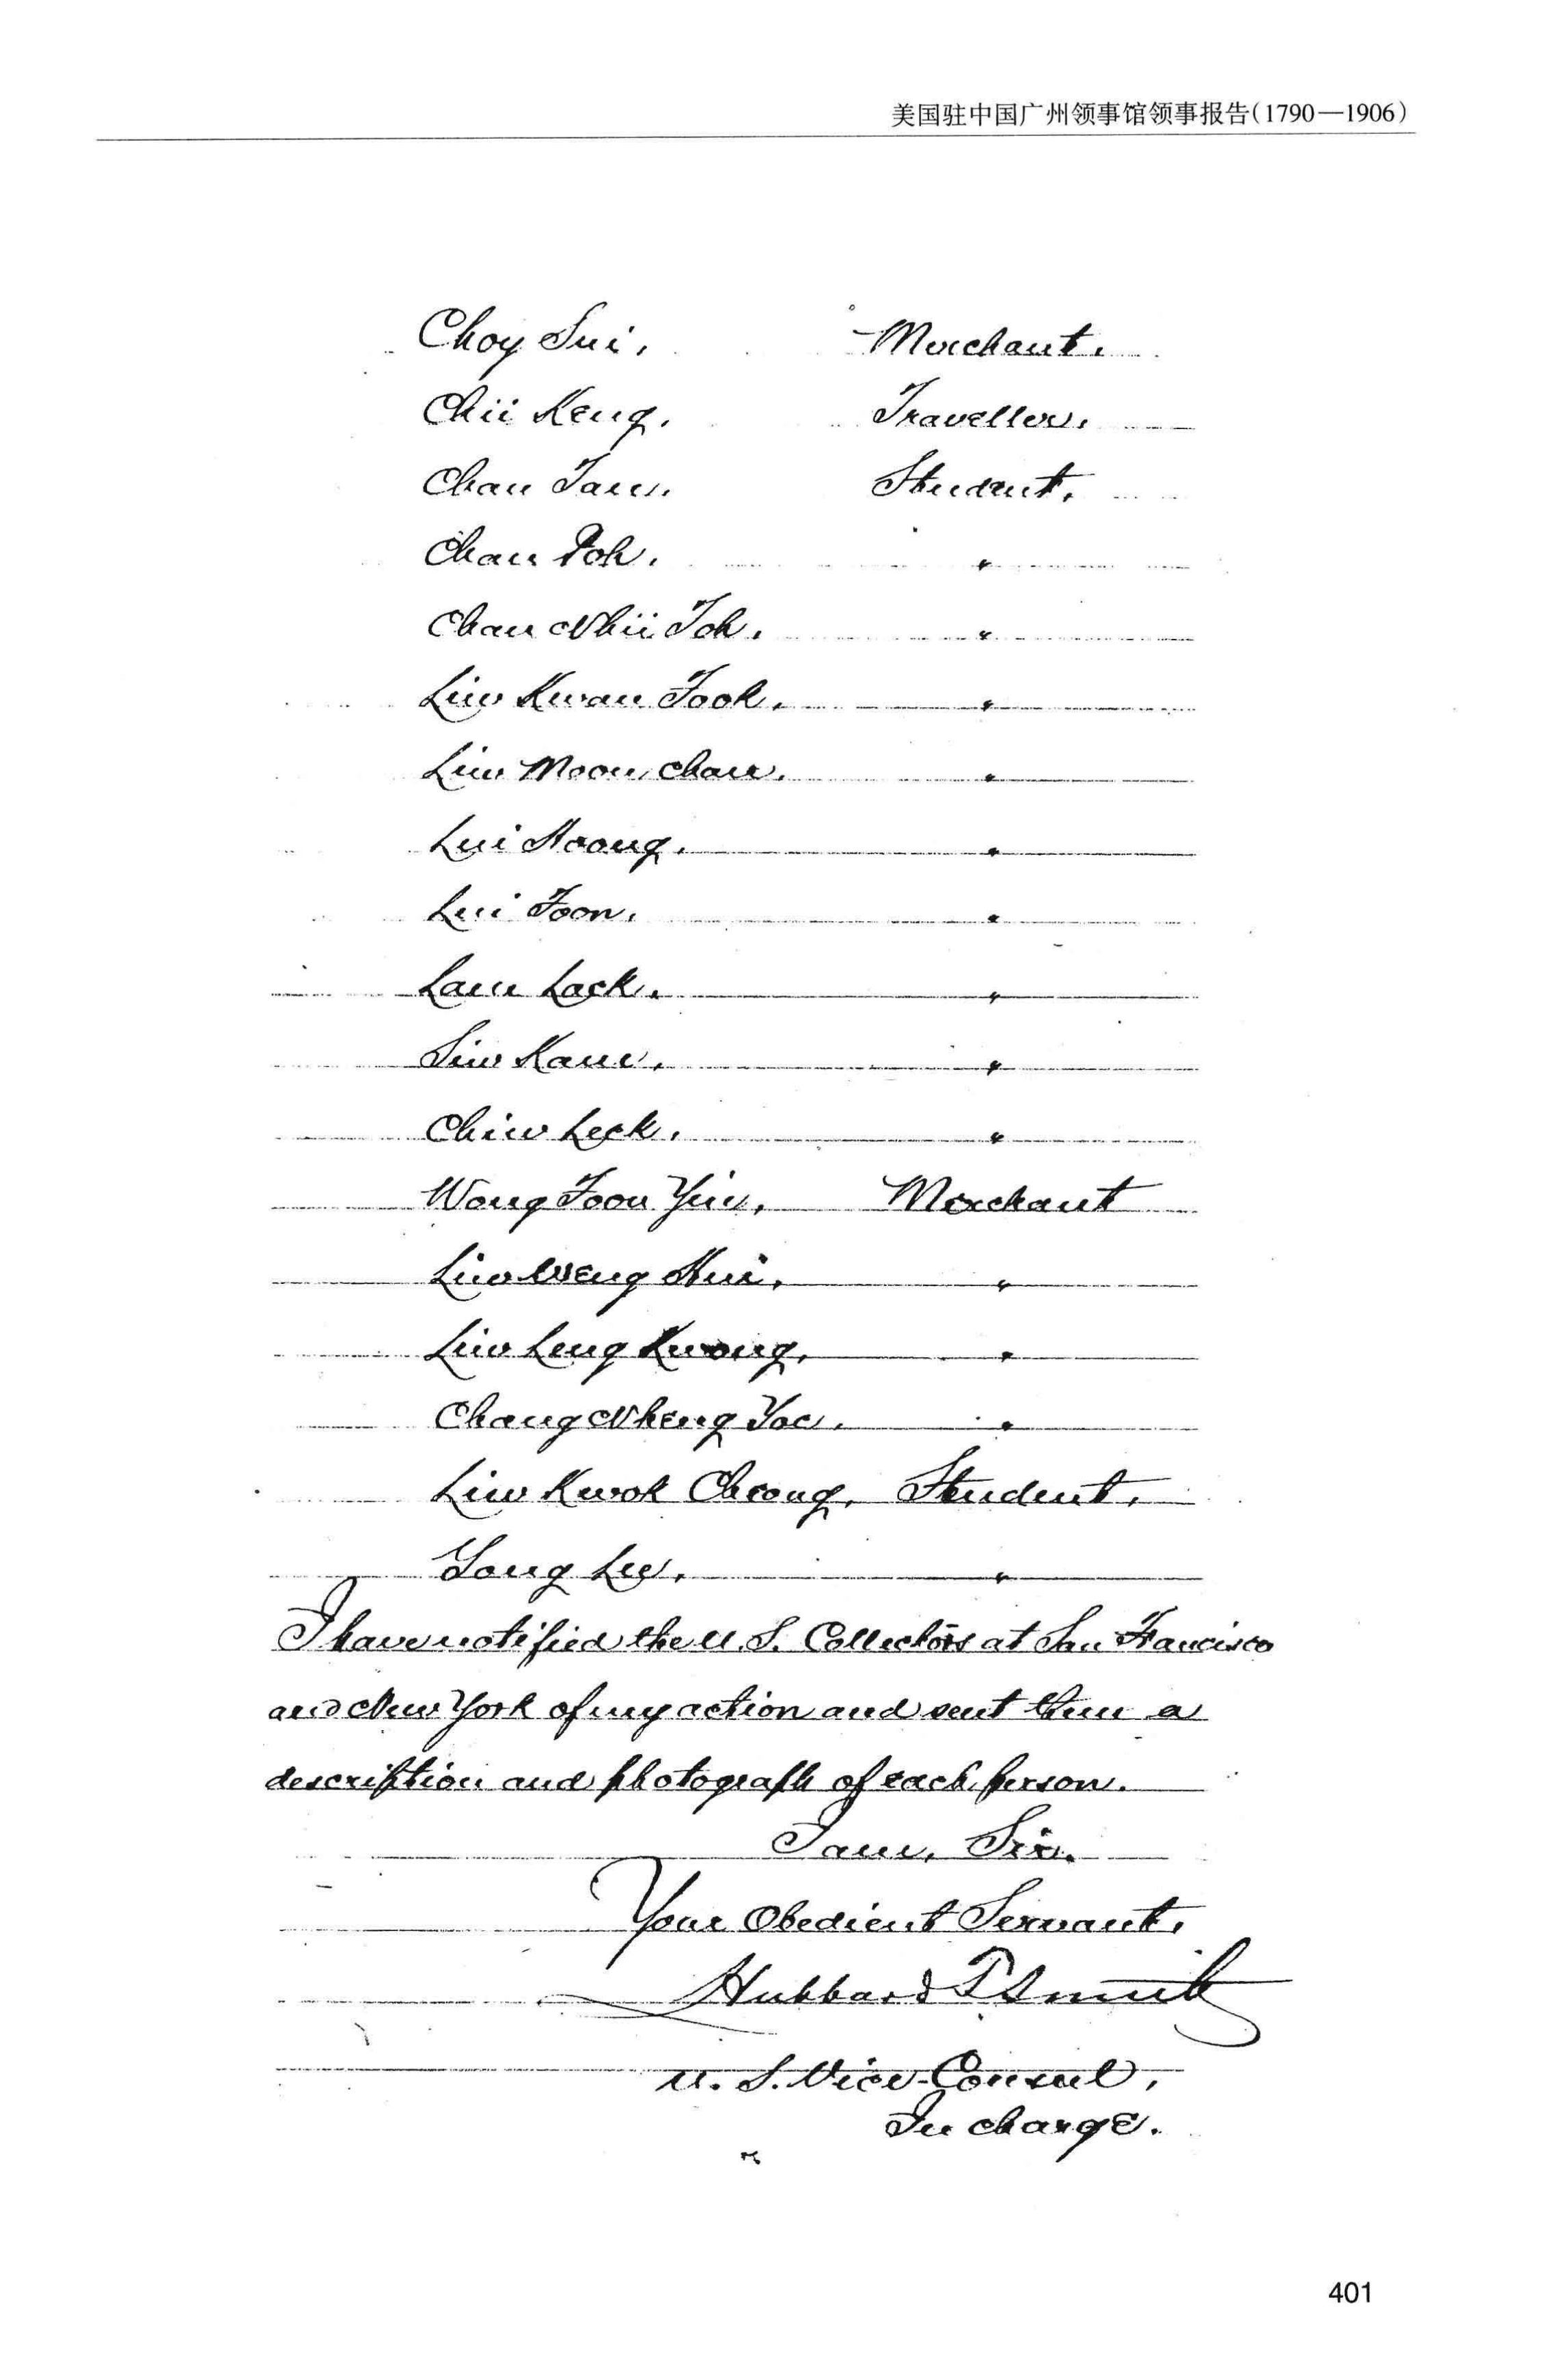 美国驻中国广州领事馆领事报告(1790—1906)
Choy Sui, Merchant.
Chii Keng. Traveller.
Chan Tam. Student.
Chan Foh. "
Chan Nhii Toh. "
Liw Kwan Fook. "
Liw Moon Chan. "
Lui Hoong. "
Lui Foon. "
Lam Lack. "
Siw Kam. "
Chiw Leck. "
Wong Foon Yin, Merchant
Liw Weng Hui, "
Liw Leng Kwong, "
Chang Nheng Yoc. "
Liw Kwok Cheong, Student,
Yong Lee. "
I have notified the U.S. Collectors at San Francisco
and New York of my action and sent them a
description and photograph of each person.
I am, Sir.
Your Obedient Servant,
Hubbard T Smith
U.S. Vice-Consul,
In charge.
401